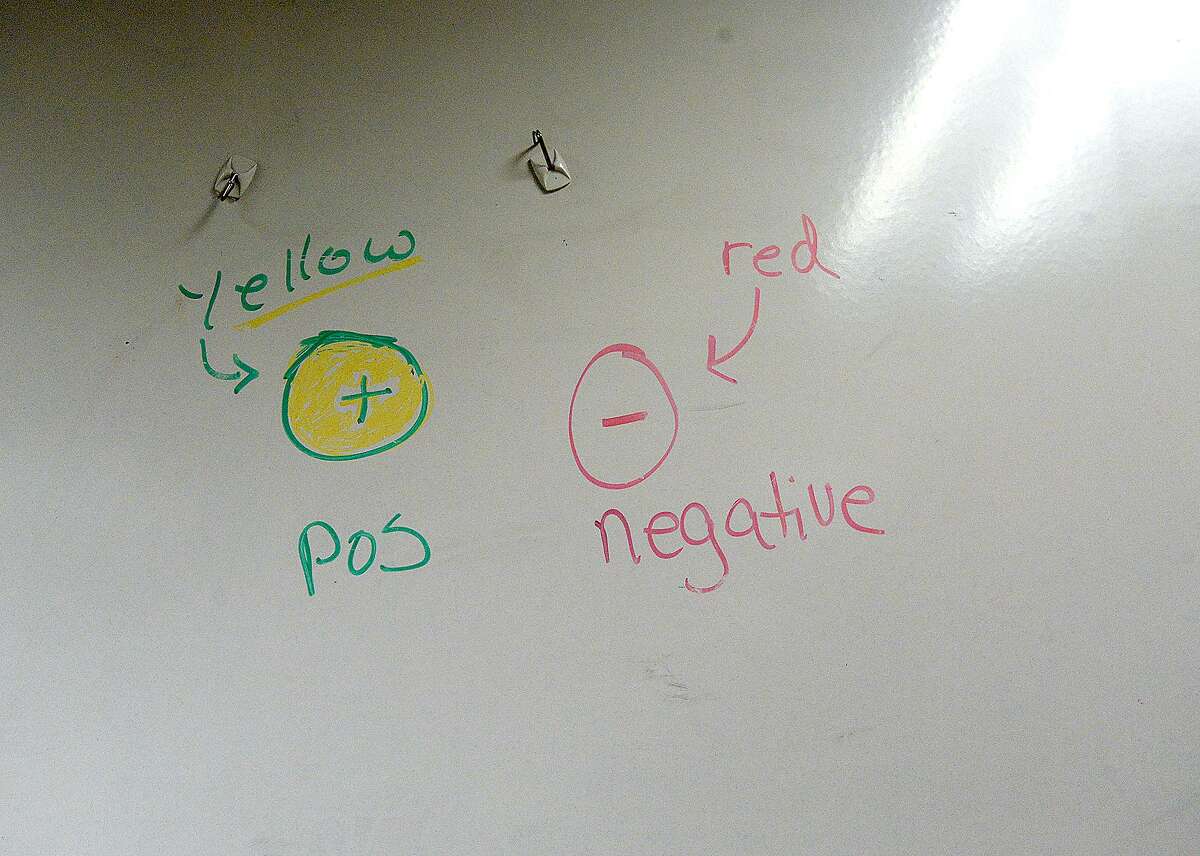 yellow
red
+
-
pos
negative